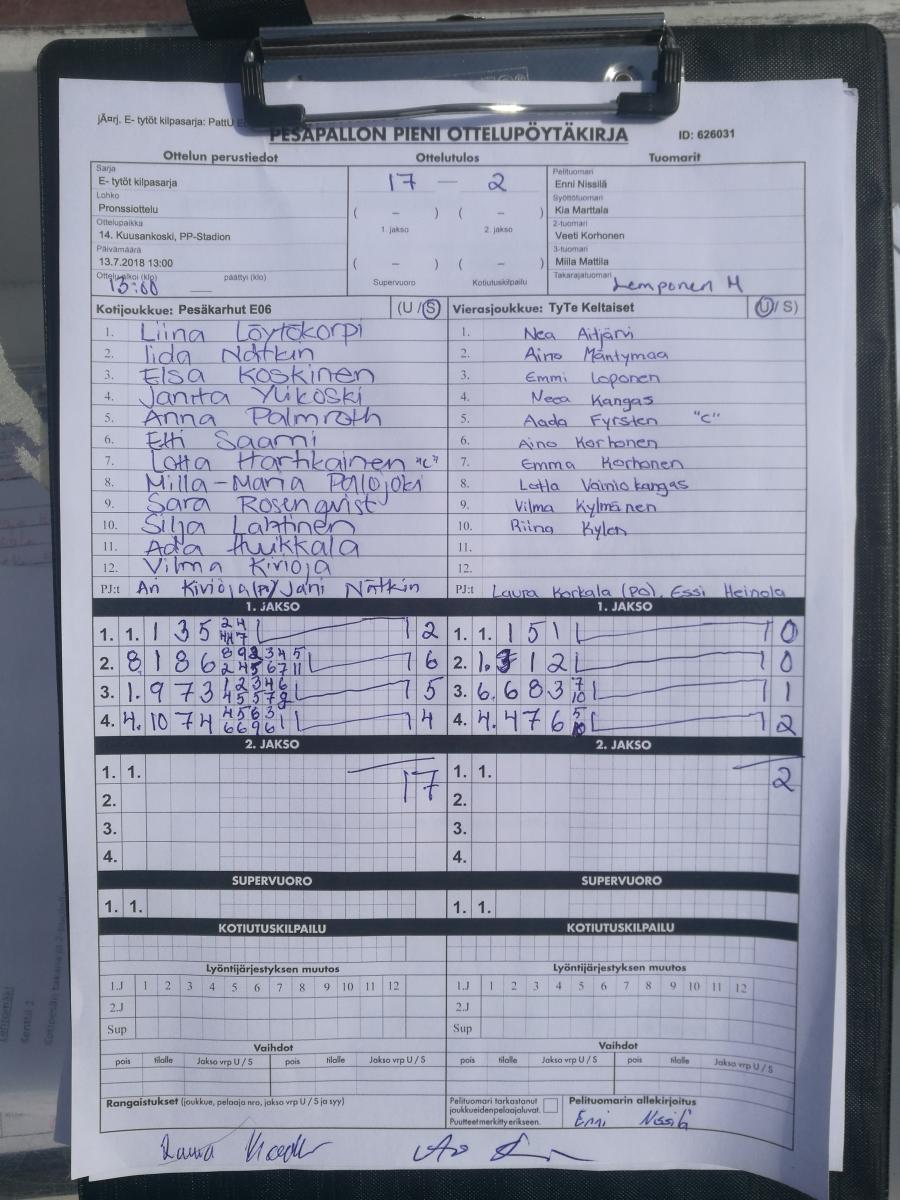 jÄ¤rj. E- tytöt kilpasarja: PattU
PESÄPALLON PIENI OTTELUPÖYTÄKIRJA
ID: 626031
Ottelun perustiedot
Ottelutulos
Tuomarit
Sarja
E- tytöt kilpasarja
Lohko
Pronssiottelu
Ottelupaikka
14. Kuusankoski, PP-Stadion
Päivämäärä
13.7.2018 13:00
Ottelu alkoi (klo) päättyi (klo)
13:00
17 – 2
( – ) ( – )
1. jakso 2. jakso
( – ) ( – )
Supervuoro Kotiutuskilpailu
Pelituomari
Enni Nissilä
Syöttötuomari
Kia Marttala
2-tuomari
Veeti Korhonen
3-tuomari
Miila Mattila
Takarajatuomari
Lemponen M
Kotijoukkue: Pesäkarhut E06 (U / S)
1. Liina Löytökorpi
2. Iida Nätkin
3. Elsa Koskinen
4. Janita Ylikoski
5. Anna Palmroth
6. Etti Saami
7. Lotta Hartikainen "C"
8. Milla-Maria Palojoki
9. Sara Rosenqvist
10. Silja Lahtinen
11. Ada Huikkala
12. Vilma Kirioja
PJ:t Ari Kirioja(PJ)/Jani Nätkin
Vierasjoukkue: TyTe Keltaiset (U / S)
1. Nea Aitjärvi
2. Aino Mäntymaa
3. Emmi Loponen
4. Neea Kangas
5. Aada Fyrsten "C"
6. Aino Korhonen
7. Emma Korhonen
8. Lotta Vainiokangas
9. Vilma Kylmänen
10. Riina Kylen
11.
12.
PJ:t Laura Korkala (PO), Essi Heinola
1. JAKSO
1. 1. 1 3 5 2
2. 8 1 8 6 6
3. 1. 9 7 3 5
4. 4. 10 7 4 4
1. JAKSO
1. 1. 1 5 1 0
2. 1. 3 1 2 0
3. 6. 6 8 3 7 10 1
4. 4. 4 7 6 5 10 2
2. JAKSO
1. 1.
17
2.
3.
4.
2. JAKSO
1. 1.
2
2.
3.
4.
SUPERVUORO
1. 1.
SUPERVUORO
1. 1.
KOTIUTUSKILPAILU
KOTIUTUSKILPAILU
Lyöntijärjestyksen muutos
1.J 1 2 3 4 5 6 7 8 9 10 11 12
2.J
Sup
Lyöntijärjestyksen muutos
1.J 1 2 3 4 5 6 7 8 9 10 11 12
2.J
Sup
Vaihdot
pois tilalle Jakso vrp U / S pois tilalle Jakso vrp U / S
Vaihdot
pois tilalle Jakso vrp U / S pois tilalle Jakso vrp U / S
Rangaistukset (joukkue, pelaaja nro, jakso vrp U / S ja syy)
Pelituomari tarkastanut
joukkueidenpelaajaluvat.
Puutteet merkitty erikseen.
Pelituomarin allekirjoitus
Enni Nissilä
Laura